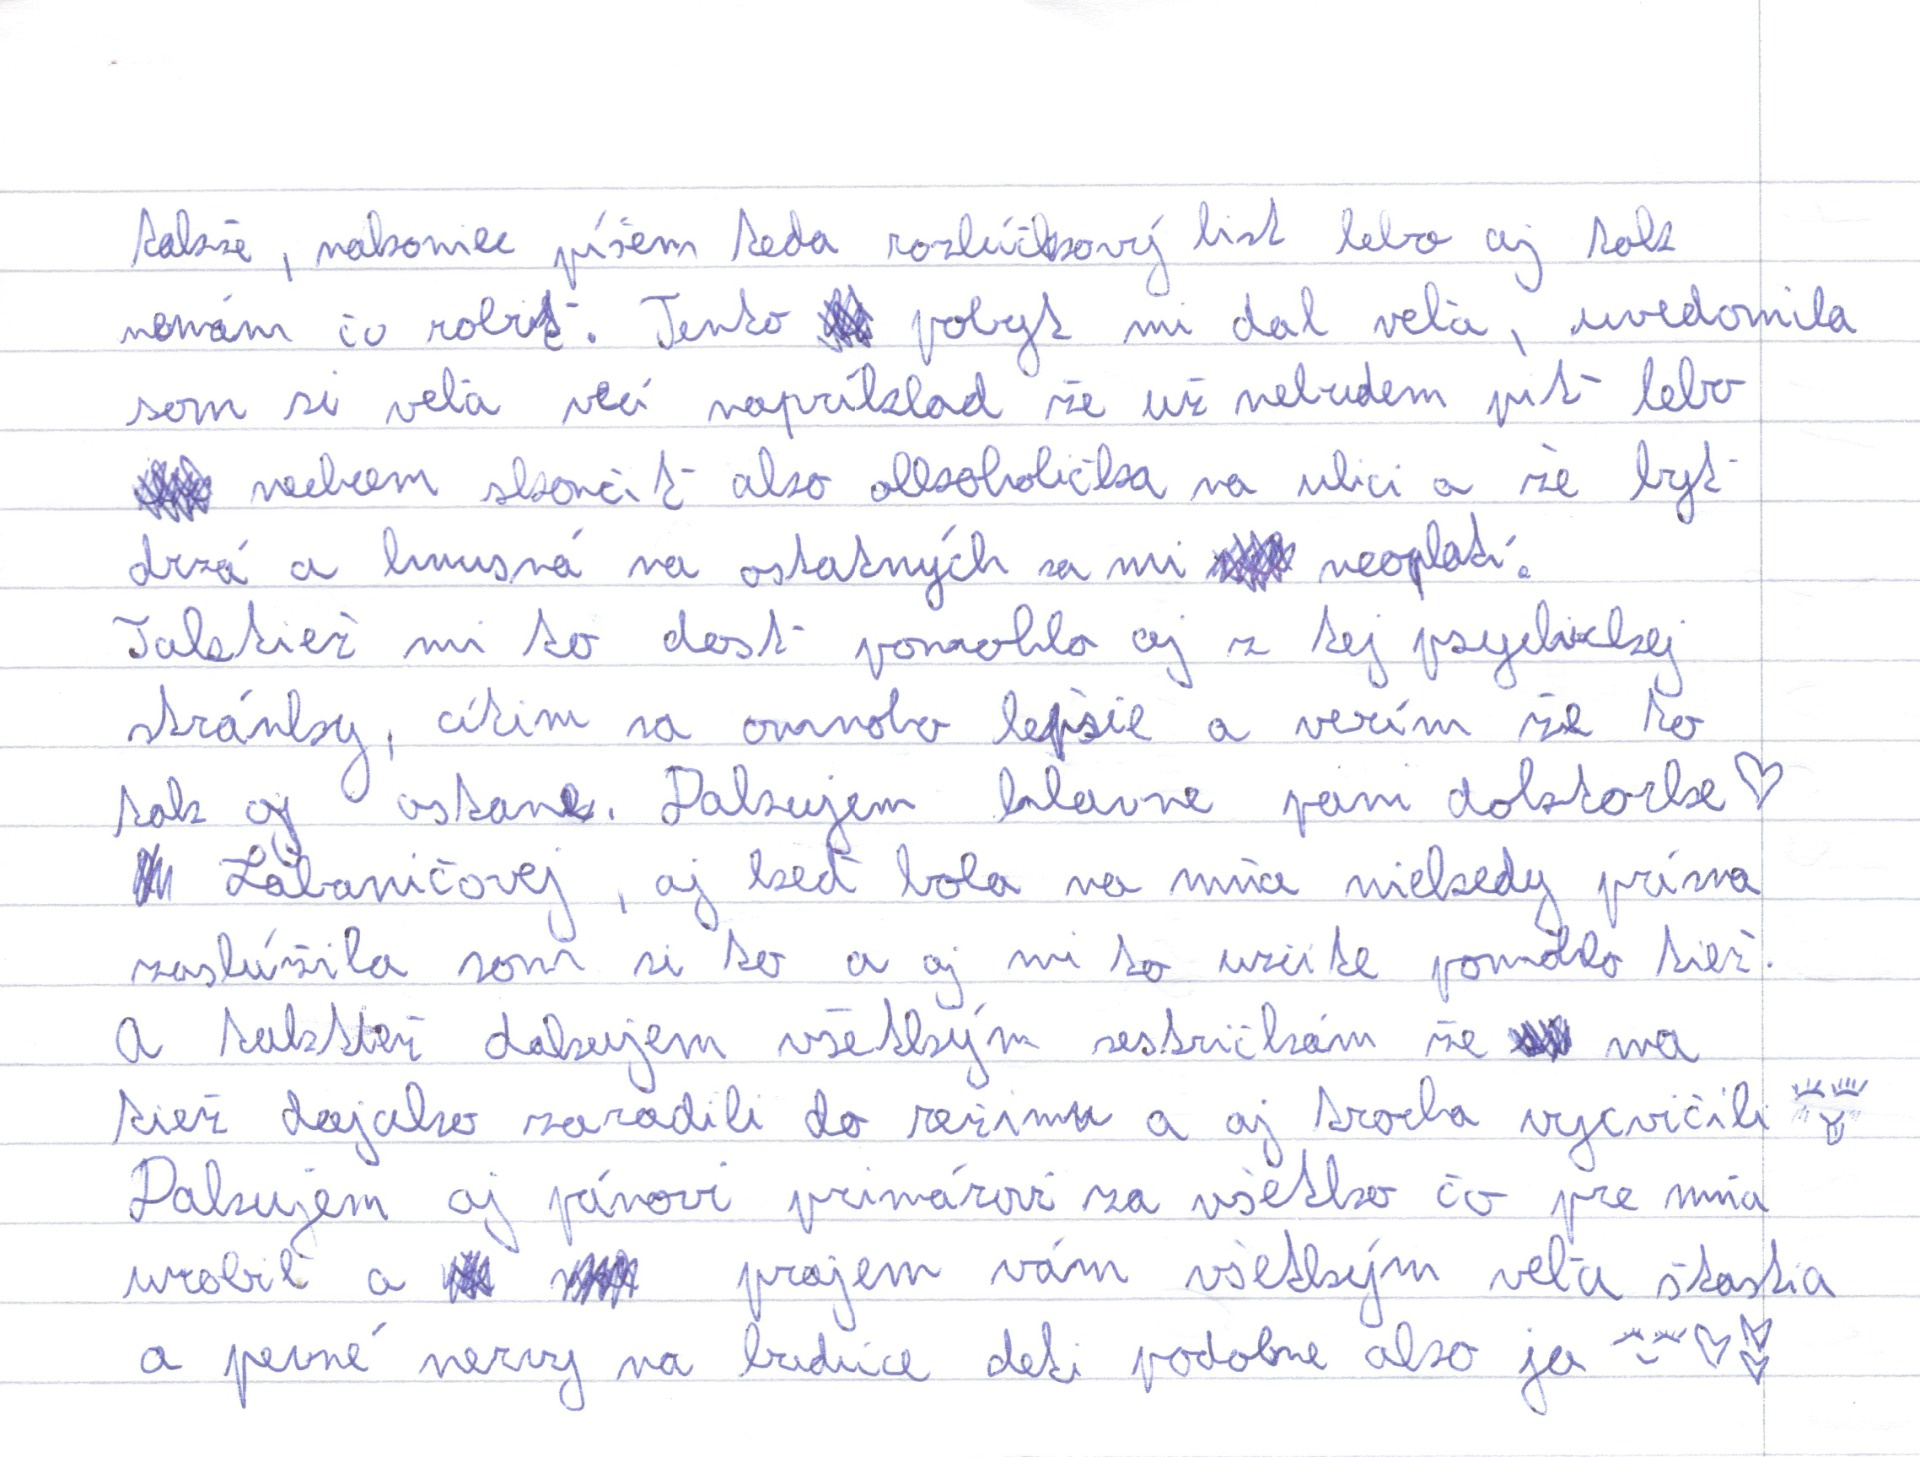 takže, nakoniec píšem teda rozlúčkový list lebo aj tak
nemám čo robiť. Tento pobyt mi dal veľa, uvedomila
som si veľa vecí napríklad že už nebudem piť lebo
nechcem skončiť ako alkoholička na ulici a že byť
drzá a hnusná na ostatných sa mi neoplatí.
Taktiež mi to dosť pomohlo aj z tej psychickej
stránky, cítim sa omnoho lepšie a verím že to
tak aj ostane. Dakujem hlavne pani doktorke ♡
Labaničovej, aj keď bola na mňa niekedy prísna
zaslúžila som si to a aj mi to určite pomohlo tiež.
A taktiež dakujem všetkým sestričkám že ma
tiež dajako zaradili do režimu a aj trocha vycvičili
Dakujem aj pánovi primárovi za všetko čo pre mňa
urobil a prajem vám všetkým veľa štastia
a pevné nervy na budúce deti podobne ako ja ♡♡♡